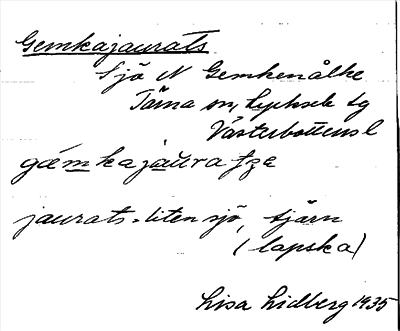 Gemkajaurats
Sjö N Gemkenålke
Tärna sn, Lycksele tg
Västerbottens l
gǽmkajaŭra
jaurats = liten sjö, tjärn
(lapska)
Lisa Lidberg 1935